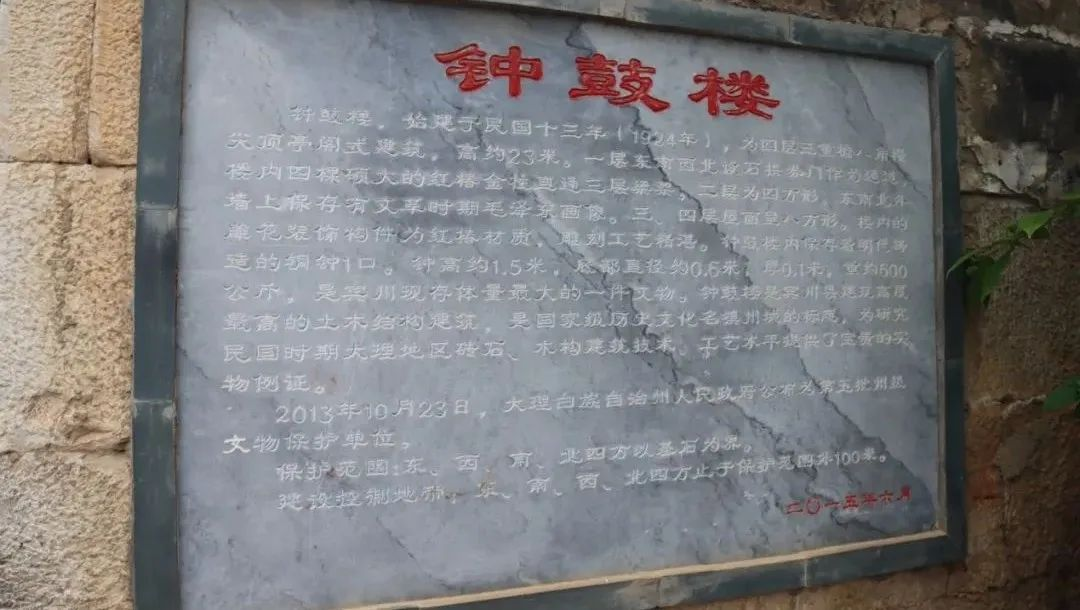 钟鼓楼
钟鼓楼,始建于民国十三年(1924年),为四层三重檐八角楼
尖顶亭阁式建筑,高约23米。一层东南西北设石拱券门作为通道,
楼内四棵硕大的红椿金柱直通三层梁架,二层为四方形,东南北外
墙上保存有文革时期毛泽东画像。三、四层屋面呈八方形。楼内的
雕花装饰构件为红椿材质,雕刻工艺精湛。钟鼓楼内保存着明代铸
造的铜钟1口。钟高约1.5米,底部直径约0.6米,厚0.1米,重约500
公斤,是宾州现存体量最大的一件文物。钟鼓楼是宾川县建筑高度
最高的土木结构建筑,是国家级历史文化名镇州城的标志,为研究
民国时期大理地区砖石、木构建筑技术、工艺水平提供了宝贵的实
物例证。
2013年10月23日,大理白族自治州人民政府公布为第五批州级
文物保护单位。
保护范围:东、西、南、北四方以基石为界。
建设控制地带:东、南、西、北四方止于保护范围外100米。
二〇一五年六月